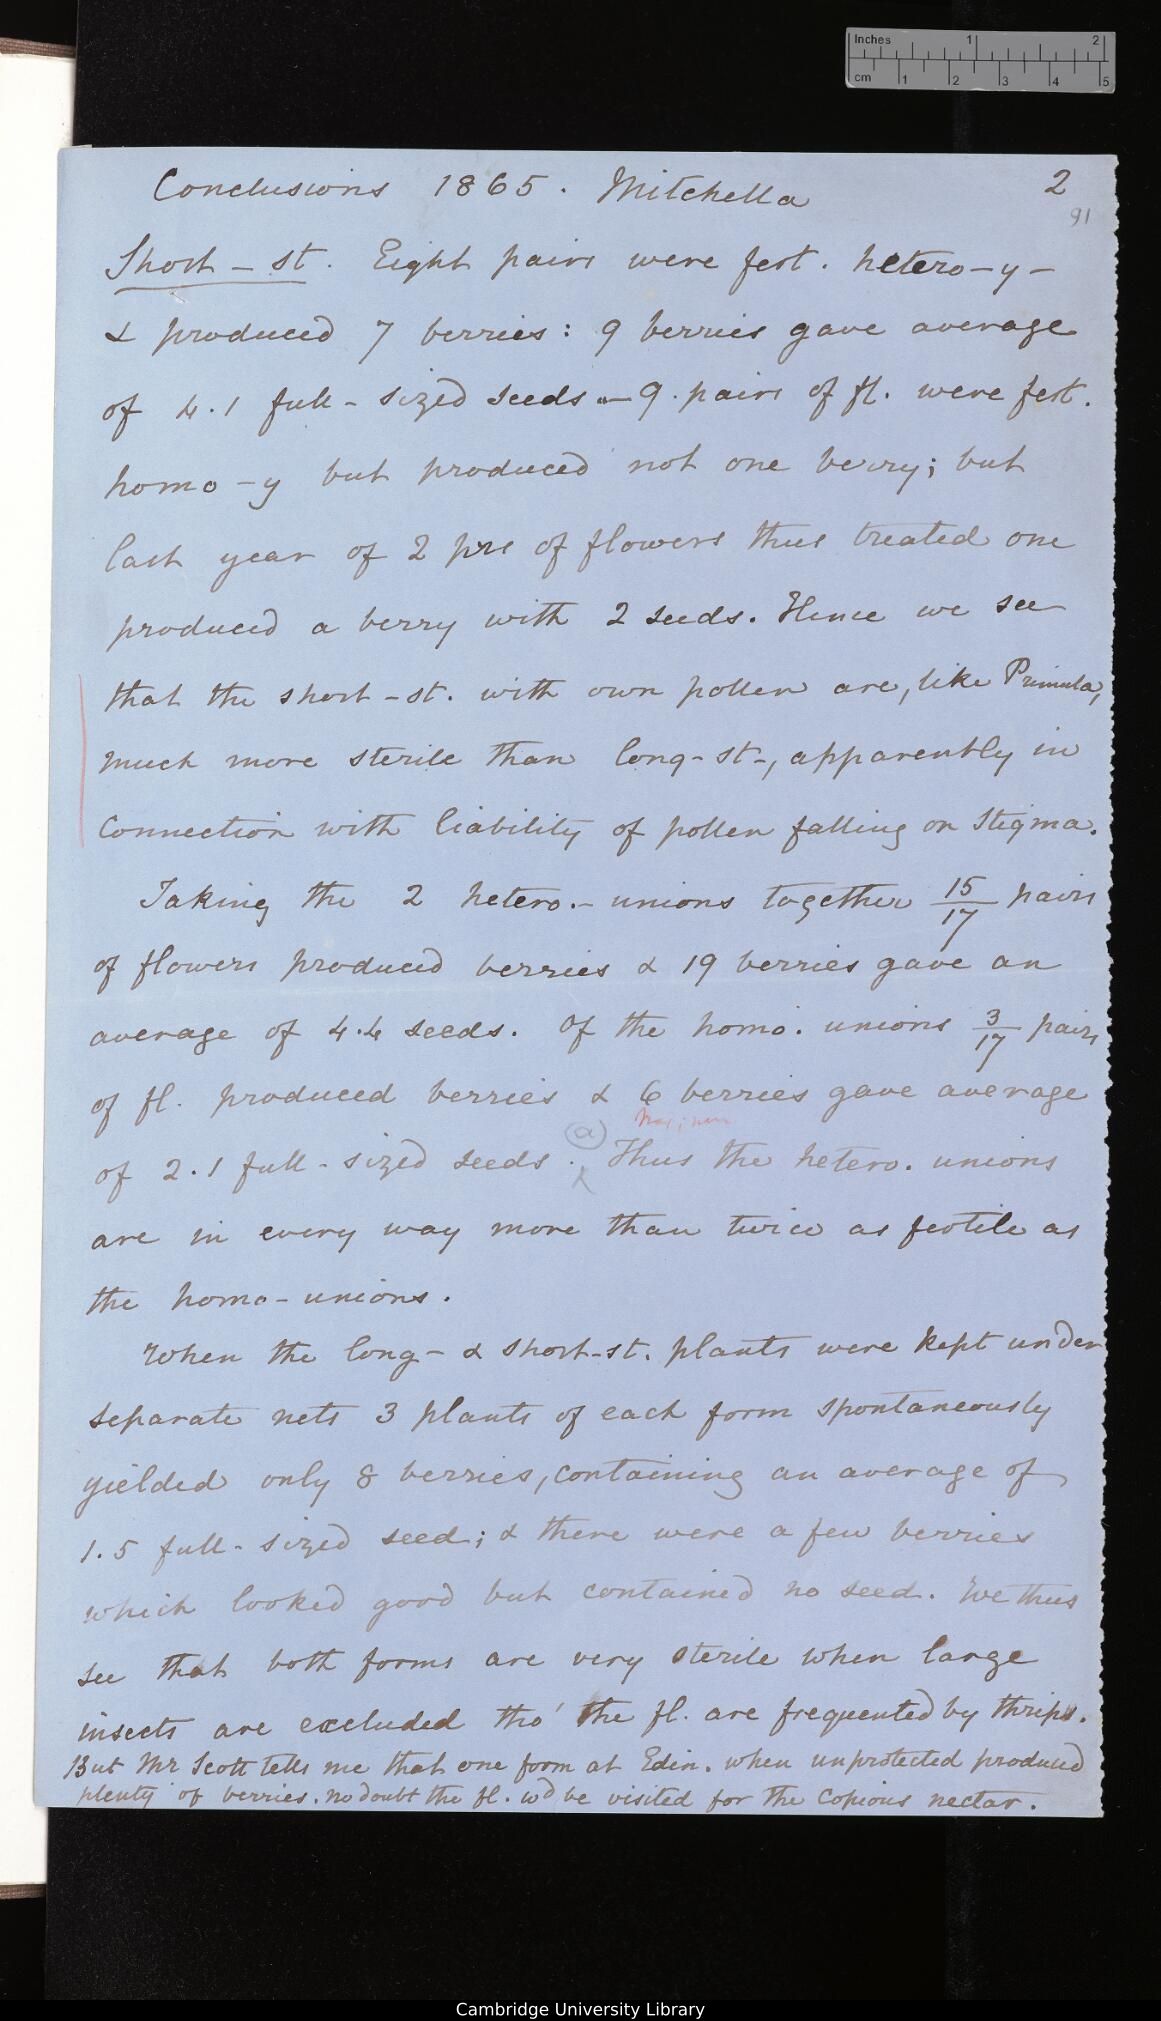 Inches 1 2
cm 1 2 3 4 5
Conclusions 1865. Mitchella 2
91
Short-st. Eight pairs were fert. hetero-y-
& produced 7 berries: 9 berries gave average
of 4.1 full-sized seeds — 9 pairs of fl. were fert.
homo-y but produced not one berry; but
last year of 2 prs of flowers thus treated one
produced a berry with 2 seeds. Hence we see
that the short-st. with own pollen are, like Primula,
much more sterile than long-st-, apparently in
connection with liability of pollen falling on stigma.
Taking the 2 hetero.- unions together 15/17 pairs
of flowers produced berries & 19 berries gave an
average of 4.4 seeds. Of the homo. unions 3/17 pairs
of fl. produced berries & 6 berries gave average
(a)
of 2.1 full-sized seeds. Thus the hetero. unions
are in every way more than twice as fertile as
the homo-unions.
When the long- & short-st. plants were kept under
separate nets 3 plants of each form spontaneously
yielded only 8 berries, containing an average of
1.5 full-sized seed; & there were a few berries
which looked good but contained no seed. We thus
see that both forms are very sterile when large
insects are excluded tho' the fl. are frequented by thrips.
But Mr Scott tells me that one form at Edin. when unprotected produced
plenty of berries. no doubt the fl. wd be visited for the copious nectar.
Cambridge University Library